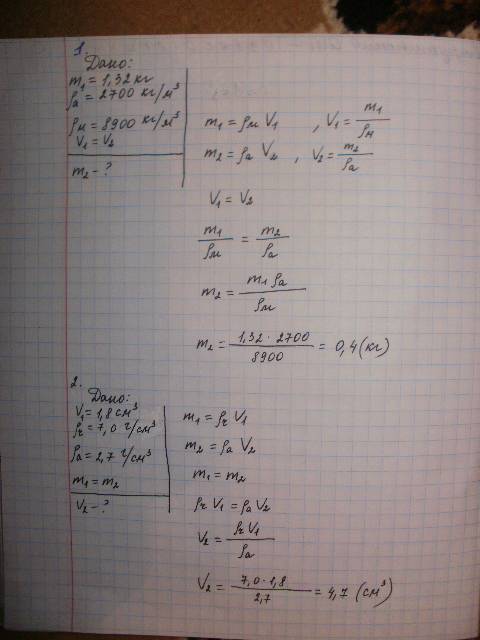 1.
Дано:
m₁ = 1,32 кг
ρа = 2700 кг/м³
ρм = 8900 кг/м³
V₁ = V₂
m₂ - ?
m₁ = ρм V₁ , V₁ = m₁/ρм
m₂ = ρа V₂ , V₂ = m₂/ρа
V₁ = V₂
m₁/ρм = m₂/ρа
m₂ = m₁ ρа/ρм
m₂ = 1,32 · 2700/8900 = 0,4 (кг)
2.
Дано:
V₁ = 1,8 см³
ρг = 7,0 г/см³
ρа = 2,7 г/см³
m₁ = m₂
V₂ - ?
m₁ = ρг V₁
m₂ = ρа V₂
m₁ = m₂
ρг V₁ = ρа V₂
V₂ = ρг V₁/ρа
V₂ = 7,0 · 1,8/2,7 = 4,7 (см³)